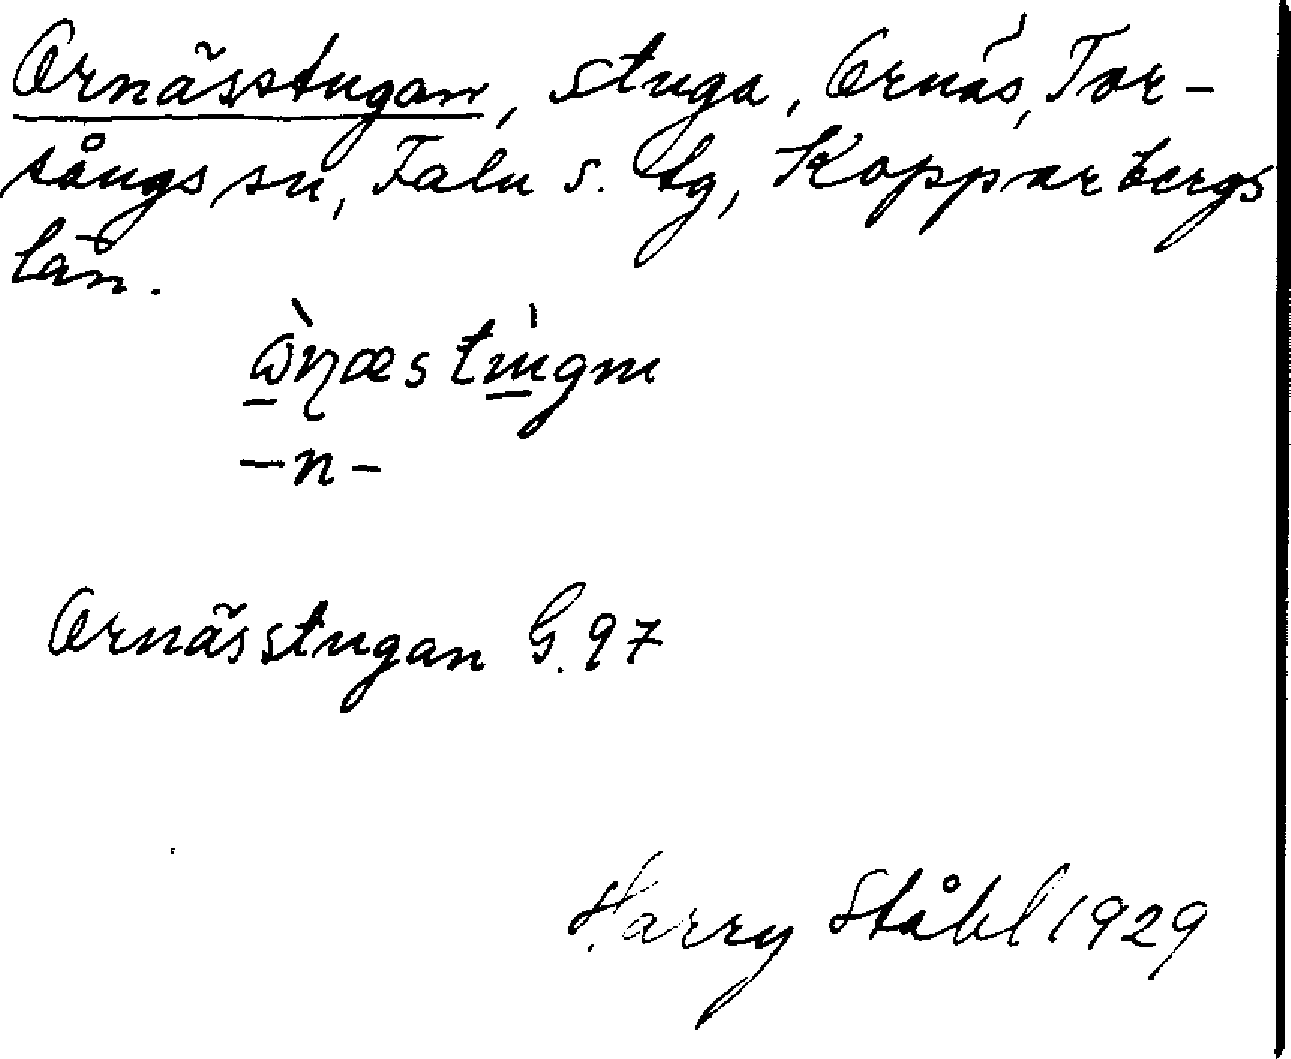 Ornässtugan, stuga, Ornäs, Tor-
sångs sn, Falu s. tg, Kopparbergs
län.
-n-
Ornässtugan G. 97
Harry Ståhl 1929